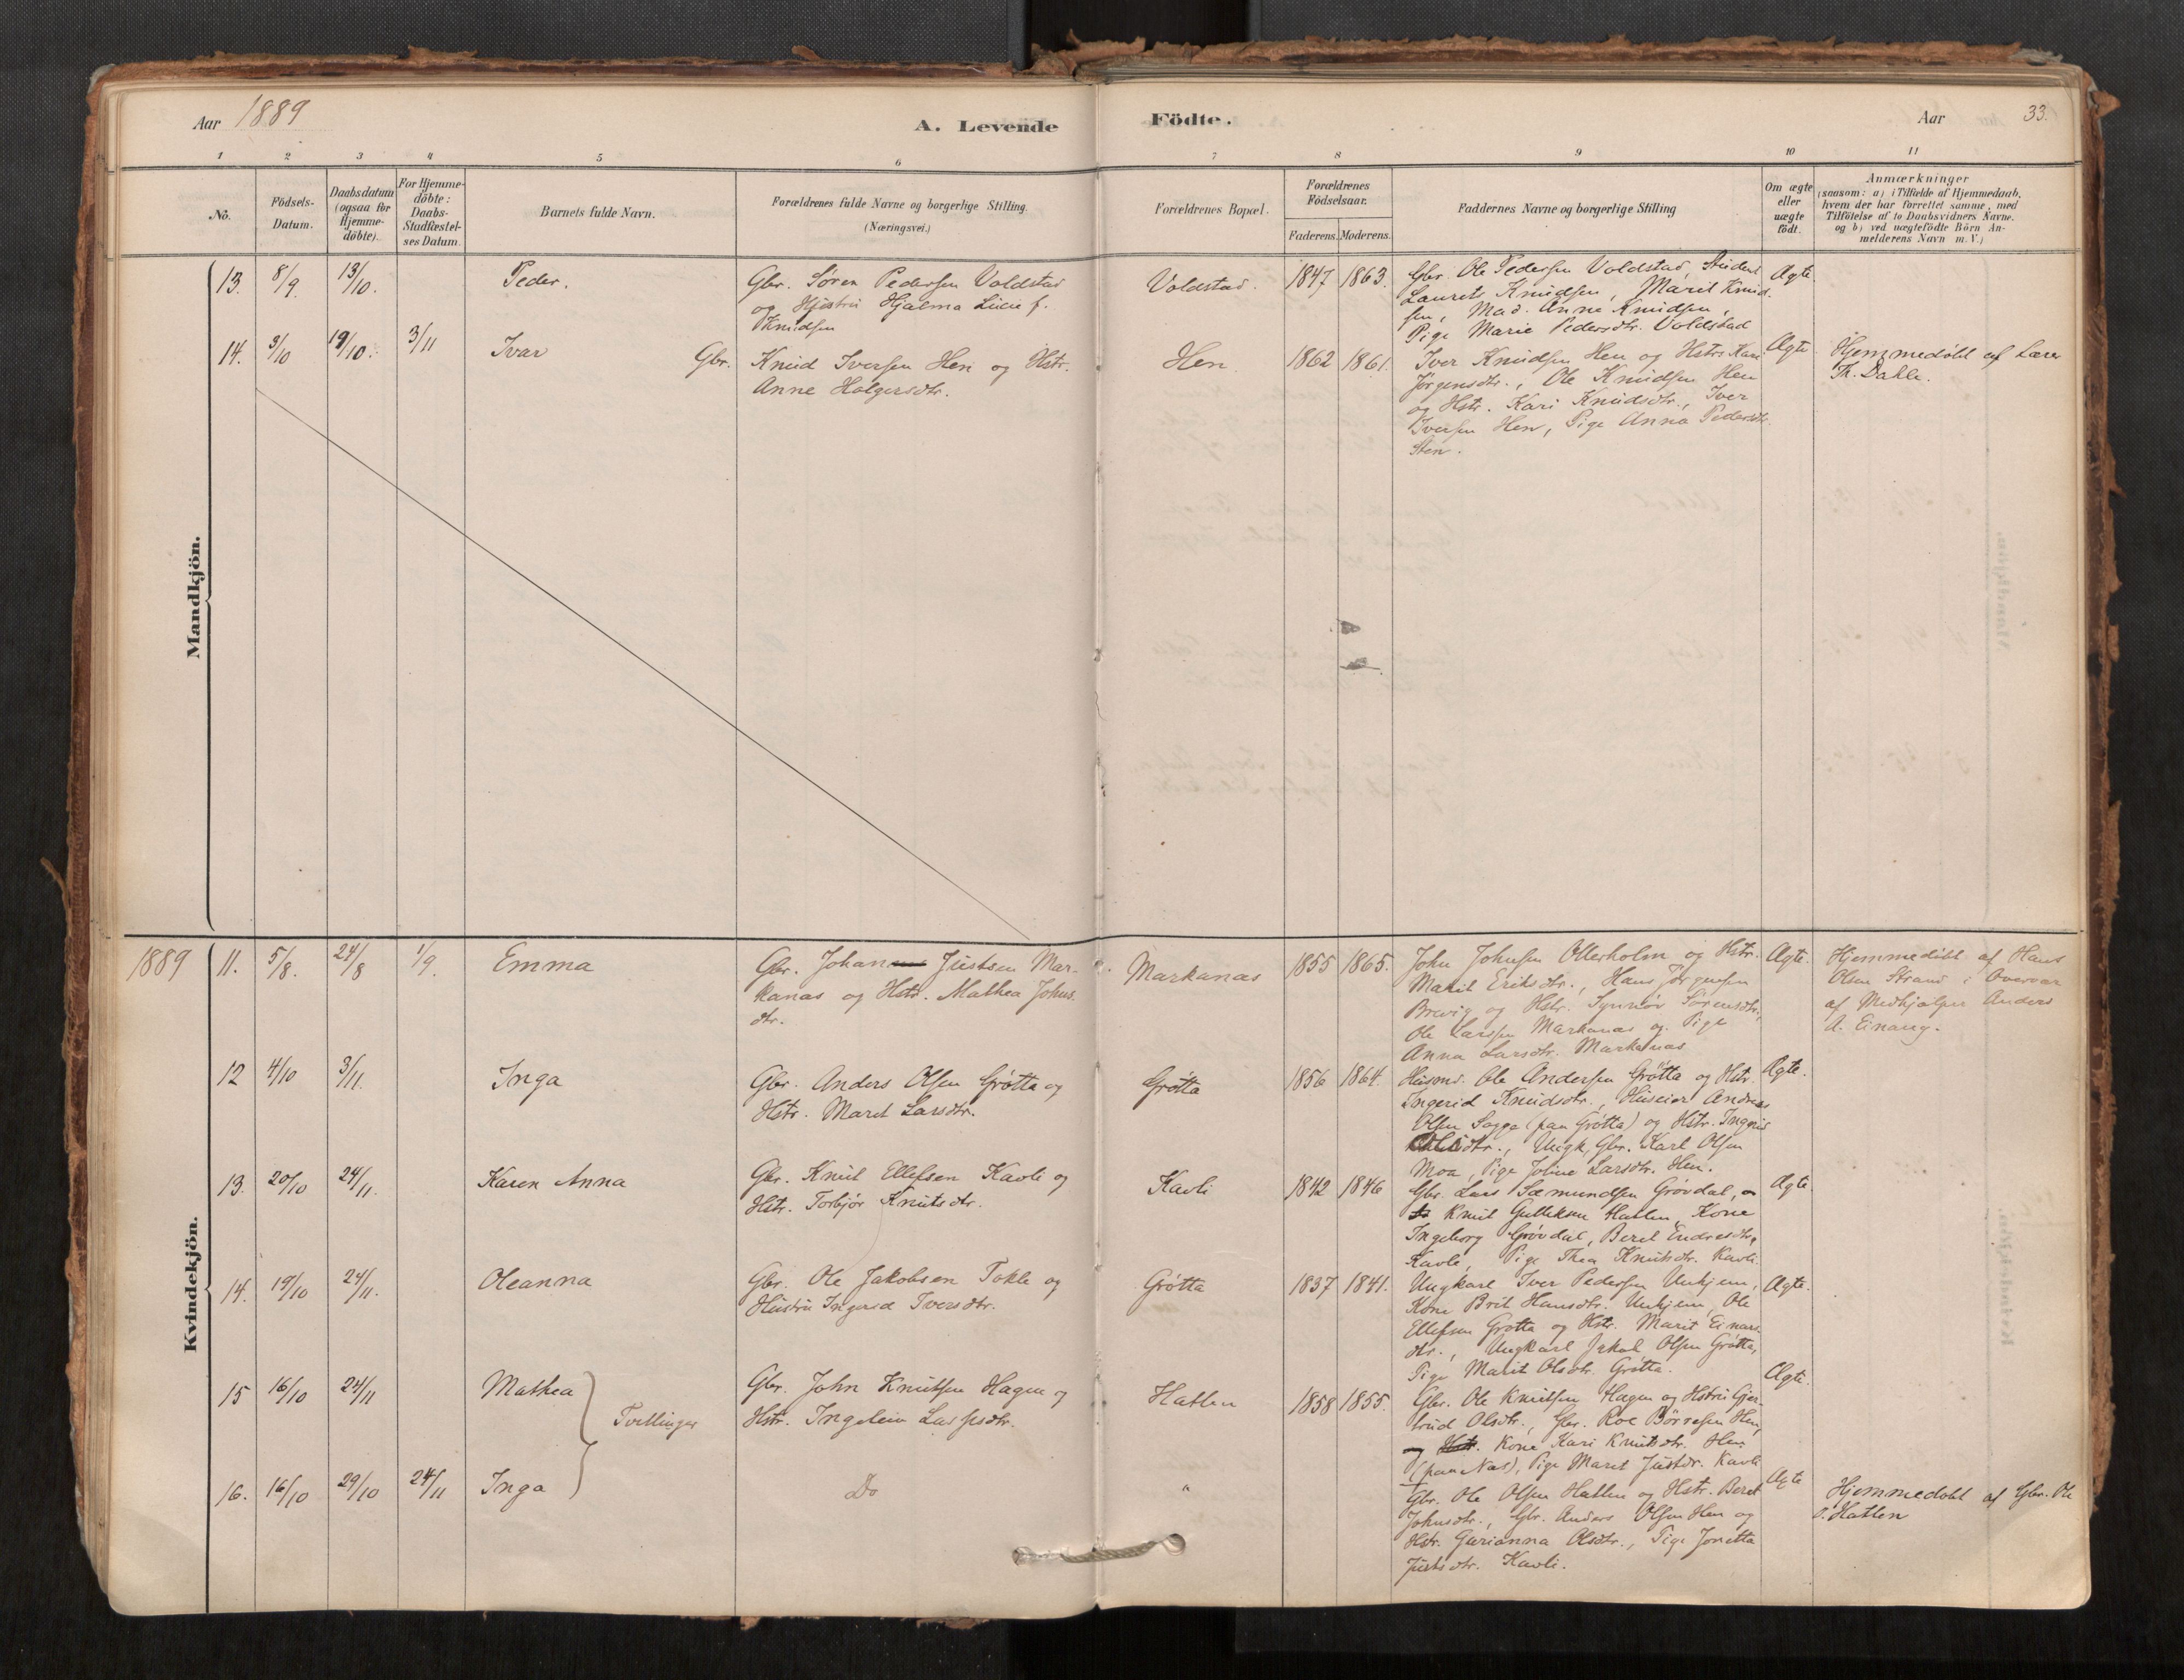 Aar 1889
A. Levende
Födte.
Aar
33.
1 2 3 4 5 6 7 8 9 10 11
No.
Födsels-
Datum.
Daabsdatum
(ogsaa för
Hjemme-
döbte).
For Hjemme-
döbte:
Daabs-
Stadfæstel-
ses Datum.
Barnets fulde Navn.
Forældrenes fulde Navne og borgerlige Stilling.
(Næringsvei.)
Forældrenes Bopæl.
Forældrenes
Födselsaar.
Faderens. Moderens.
Faddernes Navne og borgerlige Stilling
Om ægte
eller
uægte
födt.
Anmærkninger
(saasom: a) i Tilfælde af Hjemmedaab,
hvem der har forrettet samme, med
Tilföielse af to Daabsvidners Navne,
og b) ved uægtefödte Börn An-
melderens Navn m. V.)
Mandkjön.
13. 8/9. 13/10. Peder.
Gbr. Søren Pedersen Voldstad
og Hustru Hjalma Lucie f.
Knudsen
Voldstad. 1847 1863.
Gbr. Ole Pedersen Voldstad, Student
Laurets Knudsen, Marit Knud-
sen, Mad. Anne Knudsen,
Pige Marie Pedersdtr. Voldstad
Ægte.
14. 3/10 19/10. 3/11 Ivar
Gbr. Knud Iversen Hen og Hstr.
Anne Holgersdtr.
Hen 1862 1861.
Iver Knudsen Hen og Hstr. Kari
Jørgensdtr., Ole Knudsen Hen
og Hstr. Kari Knudsdtr., Iver
Iversen Hen, Pige Anna Pedersdtr.
Sten.
Ægte
Hjemmedøbt af Lærer
Th. Dahle.
Kvindekjön.
1889 11. 5/8. 24/8 1/9. Emma
Gbr. Johan Justsen Mar-
kanas og Hstr. Mathea Johns-
dtr.
Markanas 1855 1865.
John Johnsen Otterholm og Hstr.
Marit Eriksdtr., Hans Jørgensen
Brevig og Hstr. Synnöv Sörensdtr.,
Ole Larssen Markanas og Pige
Anna Larsdtr. Markanas
Ægte.
Hjemmedöbt af Hans
Olsen Strand i Overvær
af Medhjælper Anders
A. Einang.
12 4/10 3/11. Inga
Gbr. Anders Olsen Grötta og
Hstr. Maret Larsdtr.
Grötta 1856 1864.
Husmd. Ole Andersen Grötta og Hstr.
Ingerid Knudsdtr., Huseier Andreas
Olsen Sogge (paa Grötta) og Hstr. Ingeris
Olsdtr., Ungk. Gbr. Karl Olsen
Moa, Pige Joline Larsdtr. Hen.
Ægte.
13. 20/10 24/11. Karen Anna
Gbr. Knut Ellefsen Kavli og
Hstr. Torbjør Knutsdtr.
Kavli 1842 1846
Gbr. Lars Sæmundsen Grövdal,
Knut Gulleksen Hatlen, Kone
Ingeborg Grövdal, Beret Endresdtr.
Kavle, Pige Thea Knutsdtr. Kavli
Ægte.
14. 19/10 24/11. Oleanna
Gbr. Ole Jakobsen Tokle og
Hustru Ingerid Iversdtr.
Grötta 1837 1841.
Ungkarl Iver Pedersen Unhjem,
Kone Brit Hansdtr. Unhjem, Ole
Ellefsen Grotta og Hstr. Marit Einars-
dtr., Ungkarl Jakob Olsen Grötta,
Pige Marit Olsdtr. Grötta.
Ægte.
15 16/10 24/11 Mathea
Tvillinger
Gbr. John Knutsen Hagen og
Hstr. Ingeleiv Larssdtr.
Hatlen 1858 1855.
Gbr. Ole Knutsen Hagen og Hstru Gjer-
trud Olsdtr., Gbr. Roe Børresen Hen,
og Hstr. Kone Kari Knutsdtr. Hen
(paa Næs), Pige Maret Justdr. Kavli
Ægte.
16. 16/10 29/10 24/11 Inga
Do
"
Gbr. Ole Olsen Hatlen og Hstr. Beret
Johnsdtr., Gbr. Anders Olsen Hen og
Hstr. Gurianna Olsdtr., Pige Jonetta
Justsdtr. Kavli.
Ægte
Hjemmedöbt af Gbr. Ole
O. Hatlen